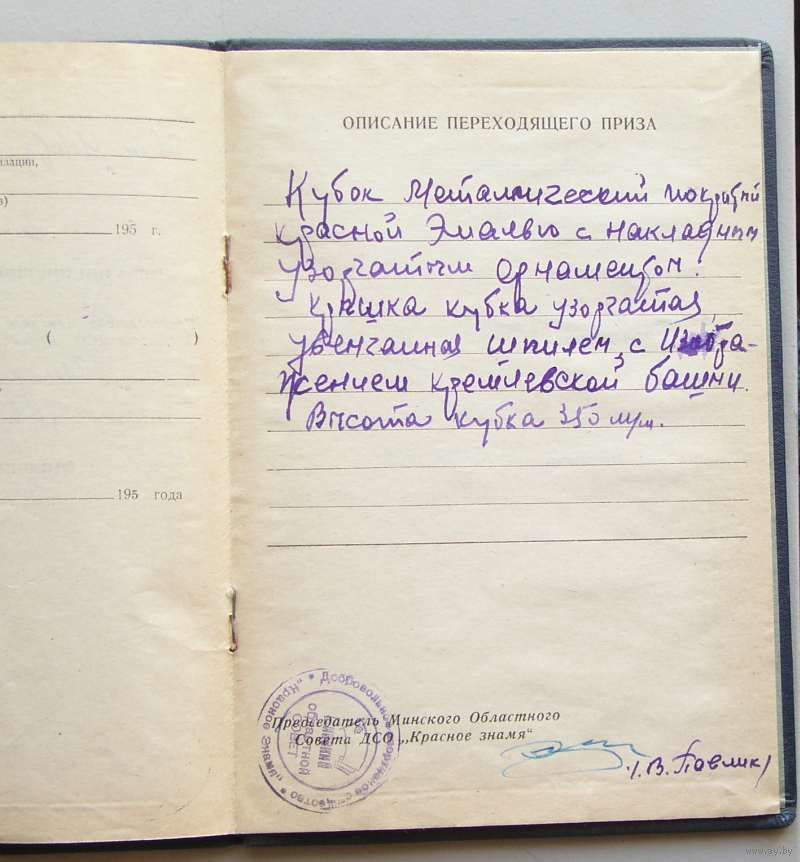 зации,
195 г.
(                )
195 года
ОПИСАНИЕ ПЕРЕХОДЯЩЕГО ПРИЗА
Кубок металлический покрытый
красной Эмалью с накладным
узорчатым орнаментом.
Крышка кубка узорчатая,
увенчанная шпилем, с изобра-
жением кремлевской башни.
Высота кубка 350 м/м.
Председатель Минского Областного
Совета ДСО „Красное знамя“
(В. Павлик)
Добровольное спортивное общество * "Красное знамя" *
Минский
областной
Совет
www.ay.by